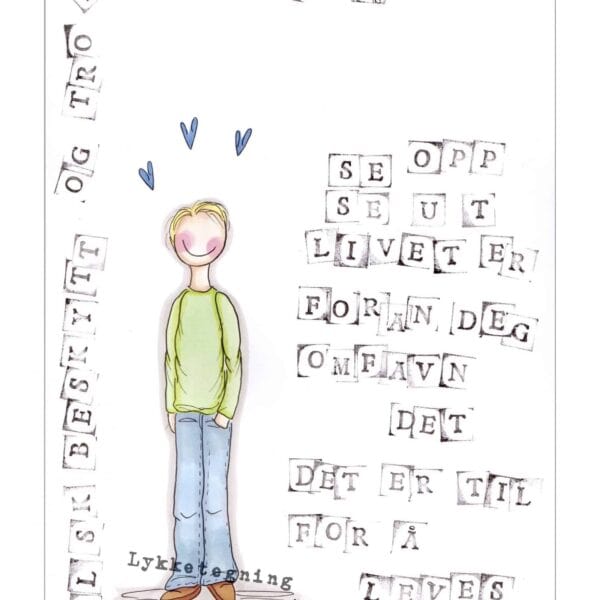 SE OPP
SE UT
LIVET ER
FORAN DEG
OMFAVN
DET
DET ER TIL
FOR Å
LEVES
ELSK BESKYTT OG TRO
Lykketegning